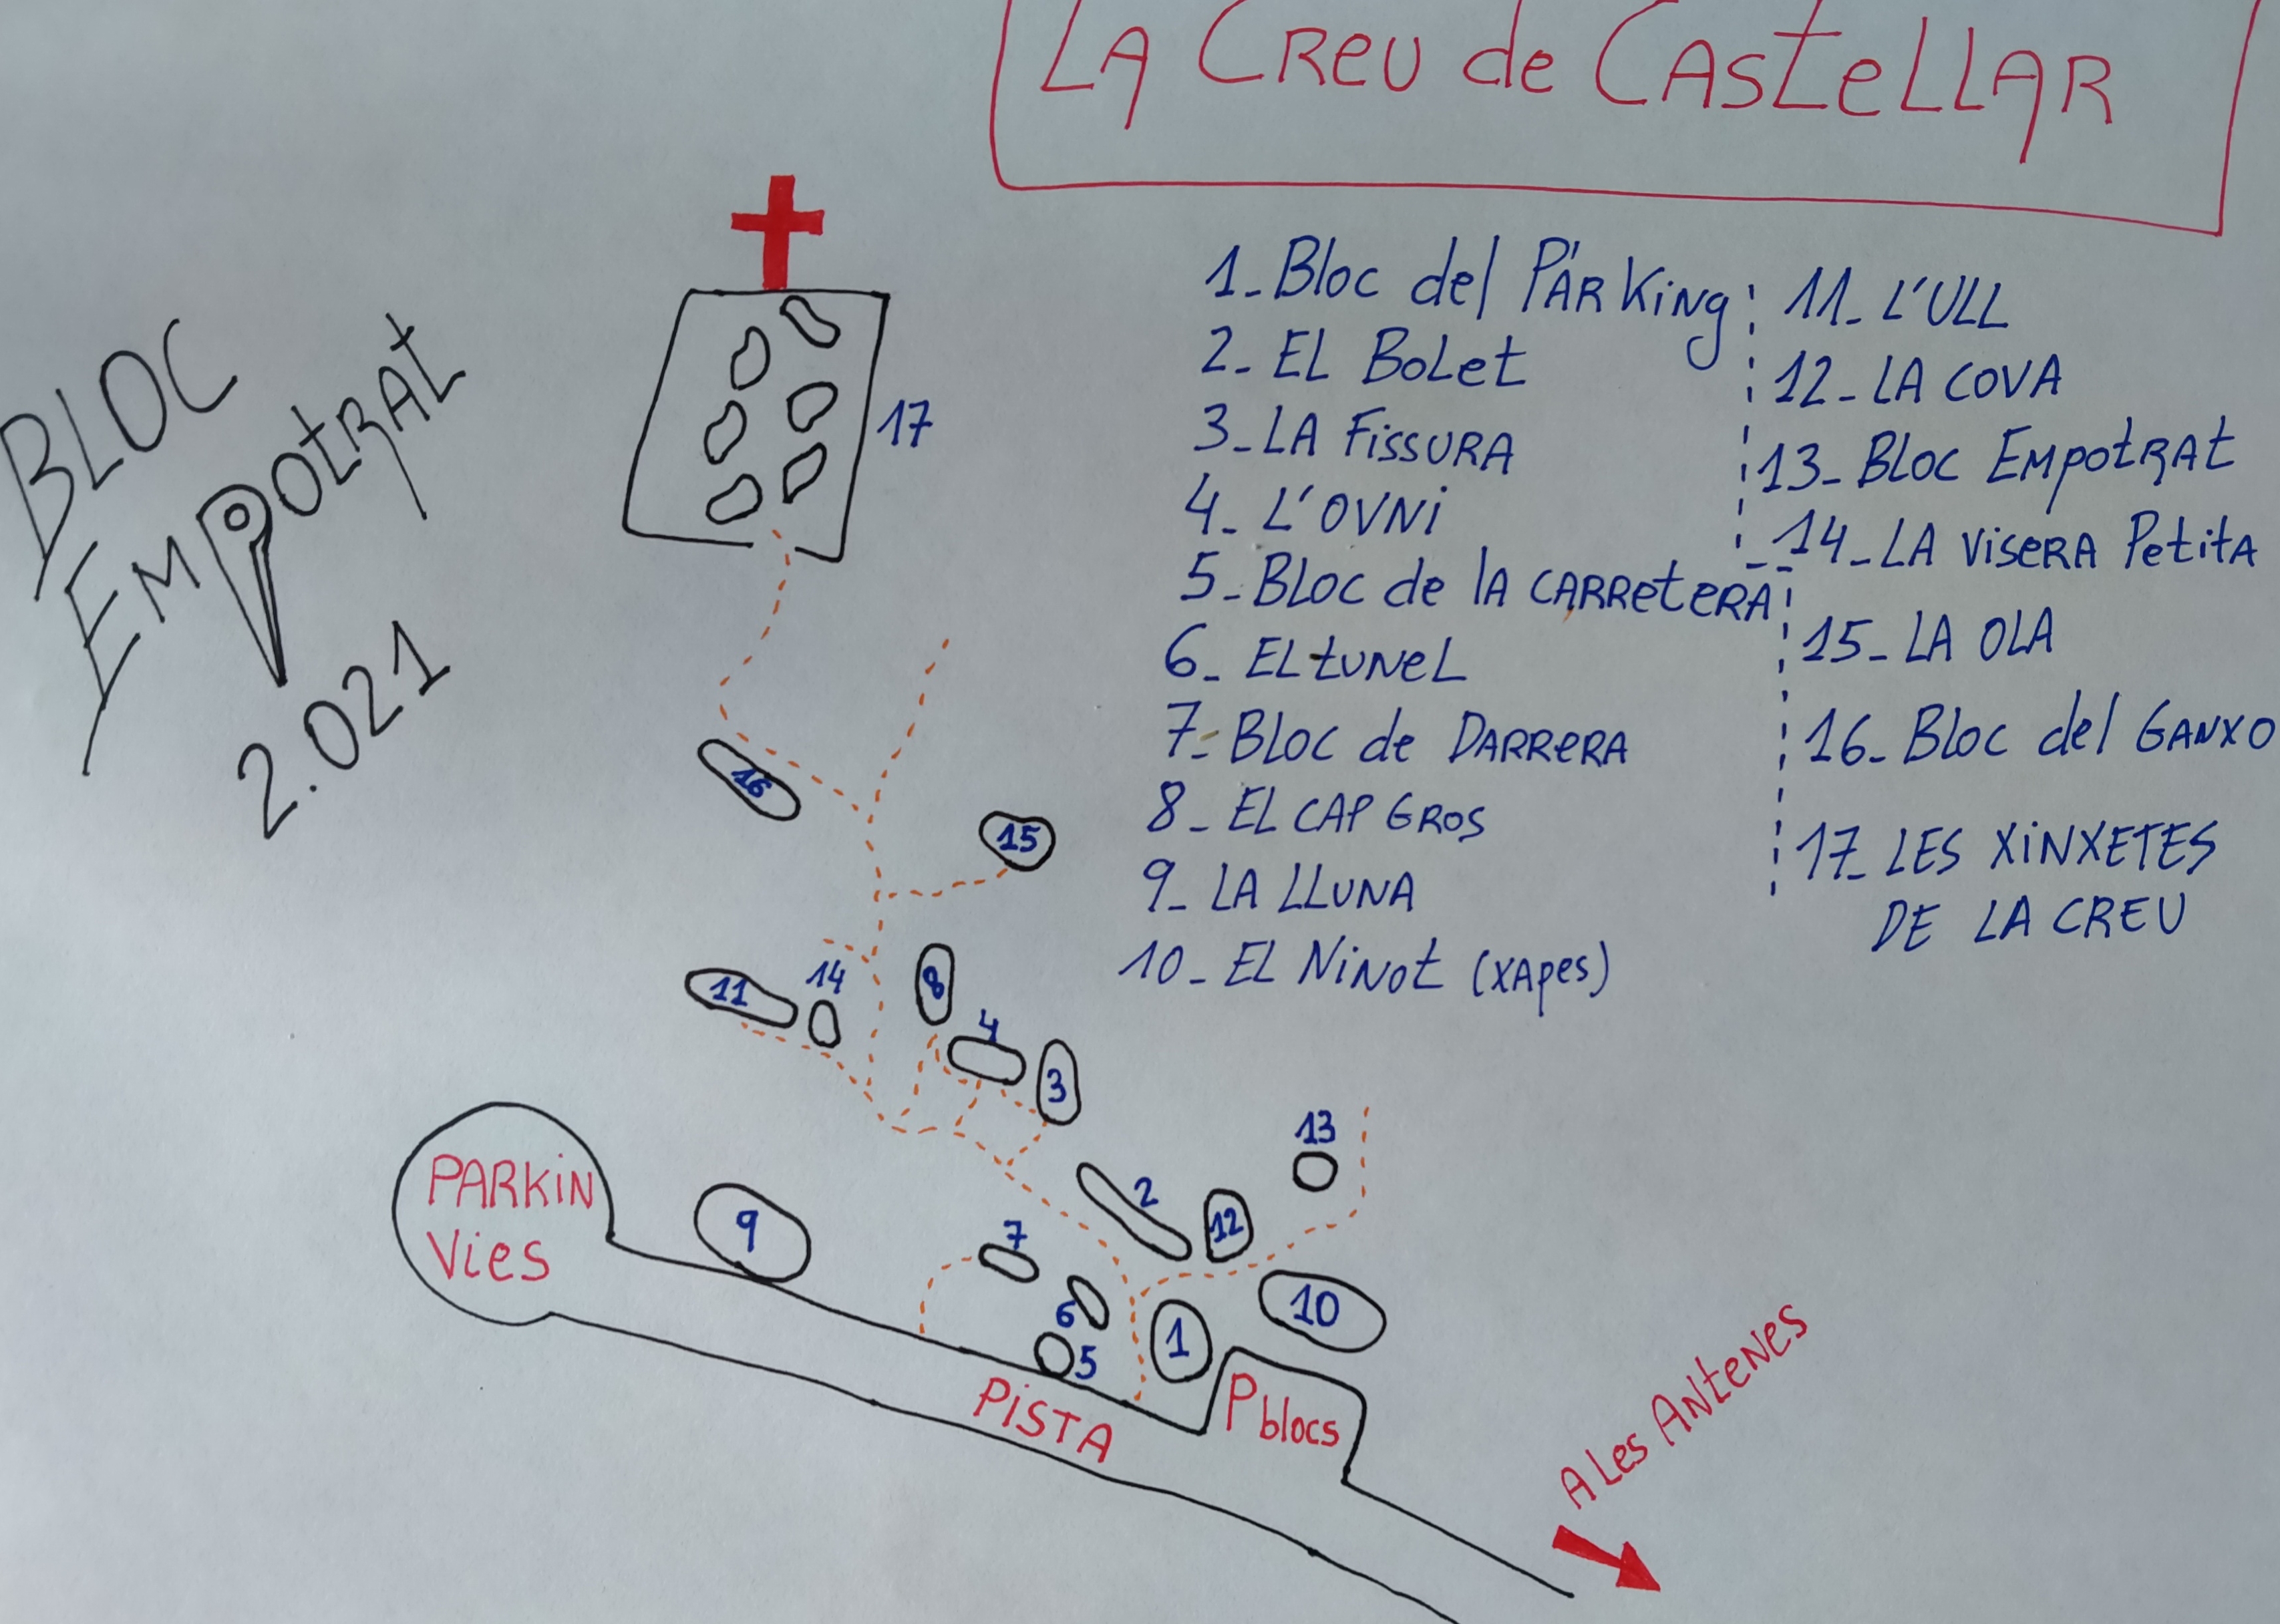 LA CReu de CAsteLLAR
BLOC
EMPOtRAt
2.021
17
1_Bloc del PÀRKiNg
2_ EL BoLet
3_LA FissuRA
4_ L'OVNi
5_BLoc de lA CARReteRA
6_ EL tuNeL
7_ BLoc de DARReRA
8_ EL CAP GRos
9_ LA LLUNA
10_ EL NiNot (XApes)
11_ L'ULL
12_LA COVA
13_ BLoc EMpotRAt
14_LA ViseRA PetitA
15_LA OLA
16_ Bloc del GANXO
17_LES XiNXETES
DE LA CREU
16
15
11
14
8
4
3
13
2
12
9
7
6
5
1
10
PARKiN
Vies
PiSTA
P blocs
A Les ANteNes